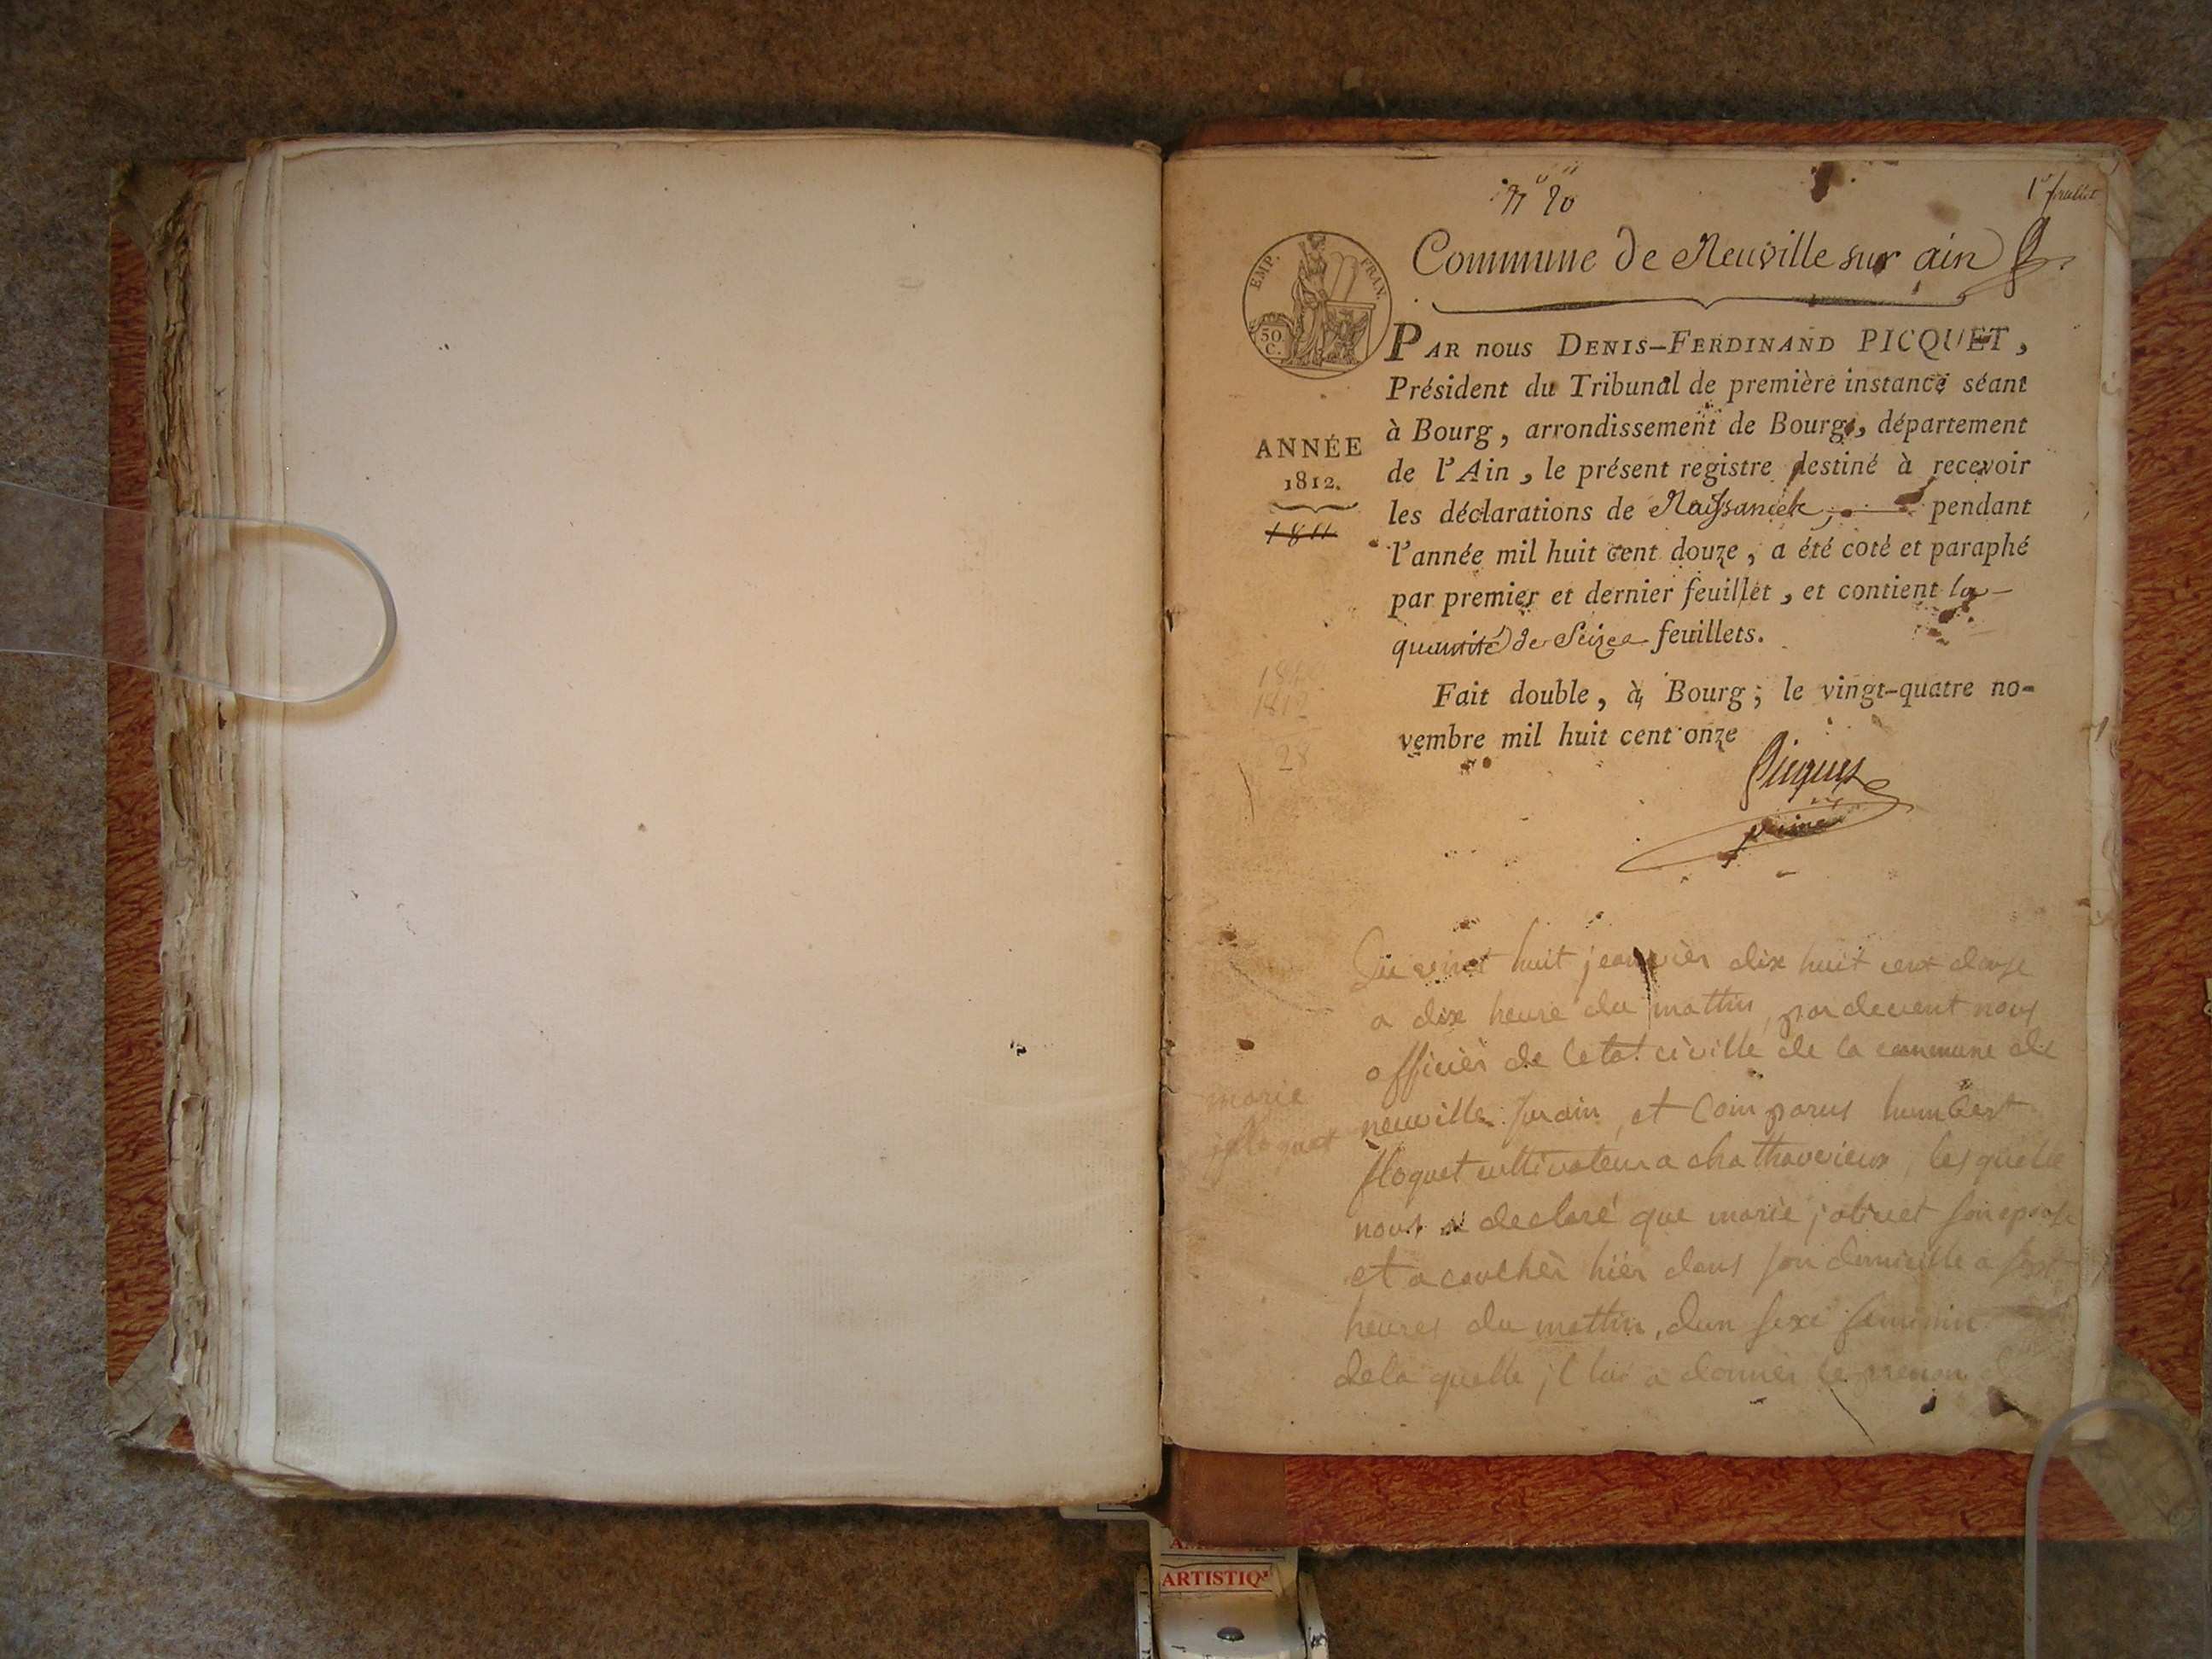 1er feuillet
Commune de Neuville sur ain
EMP. FRAN.
50
C.
PAR nous DENIS-FERDINAND PICQUET,
Président du Tribunal de première instance séant
à Bourg, arrondissement de Bourg, département
de l'Ain, le présent registre destiné à recevoir
les déclarations de Naissance, pendant
l'année mil huit cent douze, a été coté et paraphé
par premier et dernier feuillet, et contient la
quantité de Seize feuillets.
Fait double, à Bourg; le vingt-quatre no-
vembre mil huit cent onze
Picquet
ANNÉE
1812.
1811
1812
28
marie
floquet
Du vingt huit jeanvièr dix huit cent douze
a dix heure du mattin, par devent nous
officièr de letat civille de la commune de
neuville sur ain, et Comparus humbert
floquet cultivateur a chathavieux, les quelle
nous a declaré que marie jolivet son epouse
et a couchèr hièr dans son domicille a sept
heures du mattin, dun sexe feminin
dela quelle, il lui a donnèr le prenon
ARTISTIQ